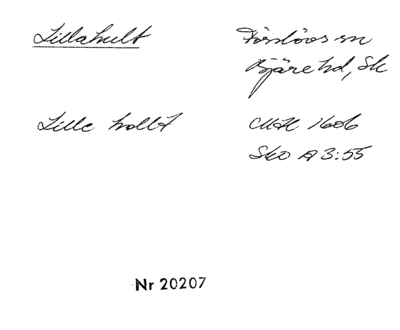 Lillahult
Förslövs sn
Bjäre hd, Sk
Lille hollt
1606
Sko A 3:55
Nr 20207